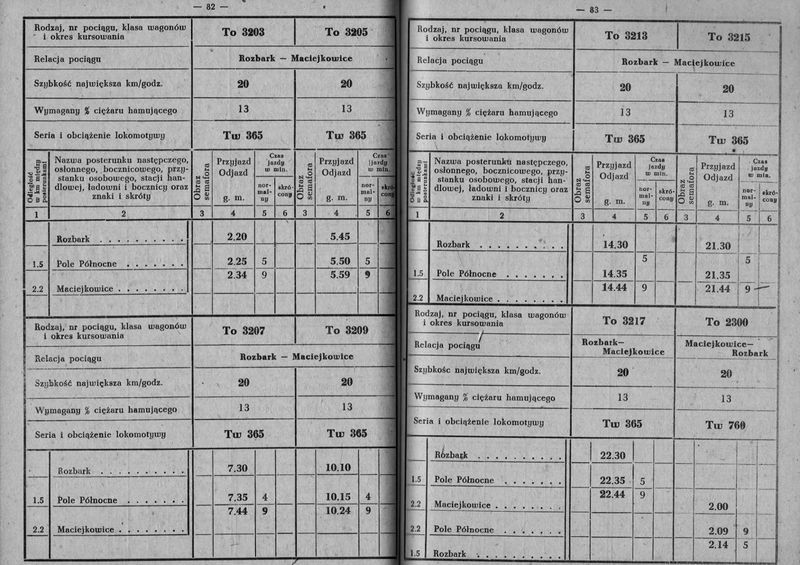 — 82 —
Rodzaj, nr pociągu, klasa wagonów i okres kursowania To 3203 To 3205
Relacja pociągu Rozbark — Maciejkowice
Szybkość największa km/godz. 20 20
Wymagany % ciężaru hamującego 13 13
Seria i obciążenie lokomotywy Tw 365 Tw 365
Odległość w km między posterunkami
Nazwa posterunku następczego, osłonnego, bocznicowego, przystanku osobowego, stacji handlowej, ładowni i bocznicy oraz znaki i skróty
Obraz semafora Przyjazd Odjazd g. m. Czas jazdy w min. normalny skrócony
Obraz semafora Przyjazd Odjazd g. m. Czas jazdy w min. normalny skrócony
1 2 3 4 5 6 3 4 5 6
Rozbark . . . . . . . . . 2.20 5.45
1.5 Pole Północne . . . . . . 2.25 5 5.50 5
2.34 9 5.59 9
2.2 Maciejkowice . . . . . . .
Rodzaj, nr pociągu, klasa wagonów i okres kursowania To 3207 To 3209
Relacja pociągu Rozbark — Maciejkowice
Szybkość największa km/godz. 20 20
Wymagany % ciężaru hamującego 13 13
Seria i obciążenie lokomotywy Tw 365 Tw 365
Rozbark . . . . . . . . . 7.30 10.10
1.5 Pole Północne . . . . . . 7.35 4 10.15 4
7.44 9 10.24 9
2.2 Maciejkowice . . . . . . .
— 83 —
Rodzaj, nr pociągu, klasa wagonów i okres kursowania To 3213 To 3215
Relacja pociągu Rozbark — Maciejkowice
Szybkość największa km/godz. 20 20
Wymagany % ciężaru hamującego 13 13
Seria i obciążenie lokomotywy Tw 365 Tw 365
Odległość w km między posterunkami
Nazwa posterunku następczego, osłonnego, bocznicowego, przystanku osobowego, stacji handlowej, ładowni i bocznicy oraz znaki i skróty
Obraz semafora Przyjazd Odjazd g. m. Czas jazdy w min. normalny skrócony
Obraz semafora Przyjazd Odjazd g. m. Czas jazdy w min. normalny skrócony
1 2 3 4 5 6 3 4 5 6
Rozbark . . . . . . . . . 14.30 21.30
5 5
1.5 Pole Północne . . . . . . 14.35 21.35
14.44 9 21.44 9
2.2 Maciejkowice . . . . . . .
Rodzaj, nr pociągu, klasa wagonów i okres kursowania To 3217 To 2300
Relacja pociągu Rozbark— Maciejkowice Maciejkowice— Rozbark
Szybkośc największa km/godz. 20 20
Wymagany % ciężaru hamującego 13 13
Seria i obciążenie lokomotywy Tw 365 Tw 760
Rozbark . . . . . . . . . 22.30
1.5 Pole Północne . . . . . . 22.35 5
22.44 9
2.2 Maciejkowice . . . . . . . 2.00
2.2 Pole Północne . . . . . . 2.09 9
2.14 5
1.5 Rozbark . . . . . . . . .